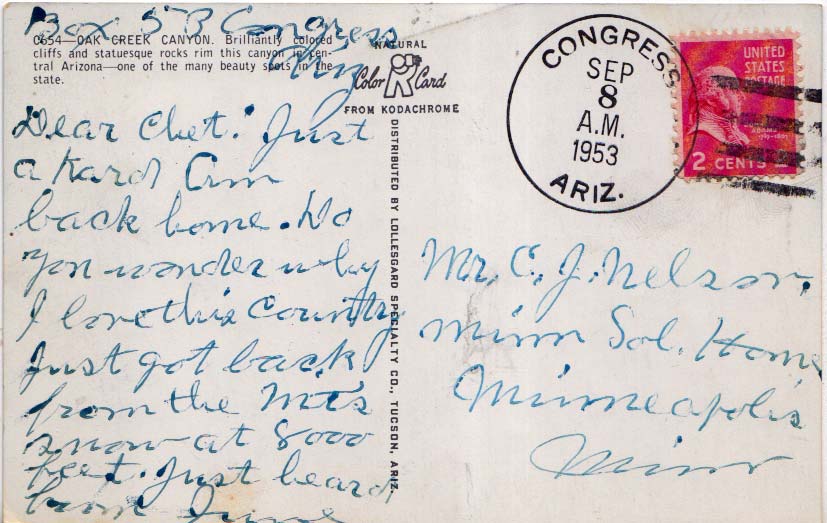 Box 5B Congress
Ariz
C654—OAK CREEK CANYON. Brilliantly colored
cliffs and statuesque rocks rim this canyon in cen-
tral Arizona—one of the many beauty spots in the
state.
Dear Chet. Just
a Kard Am
back home. Do
you wonder why
I love this Country
Just got back
from the Mts
snow at 8000
feet. Just heard
from June
NATURAL
Color Card
FROM KODACHROME
DISTRIBUTED BY LOLLESGARD SPECIALTY CO., TUCSON, ARIZ.
CONGRESS
SEP
8
A.M.
1953
ARIZ.
UNITED
STATES
POSTAGE
ADAMS
2 CENTS
Mr. C. J. Nelson.
Minn Sol. Home
Minneapolis
Minn